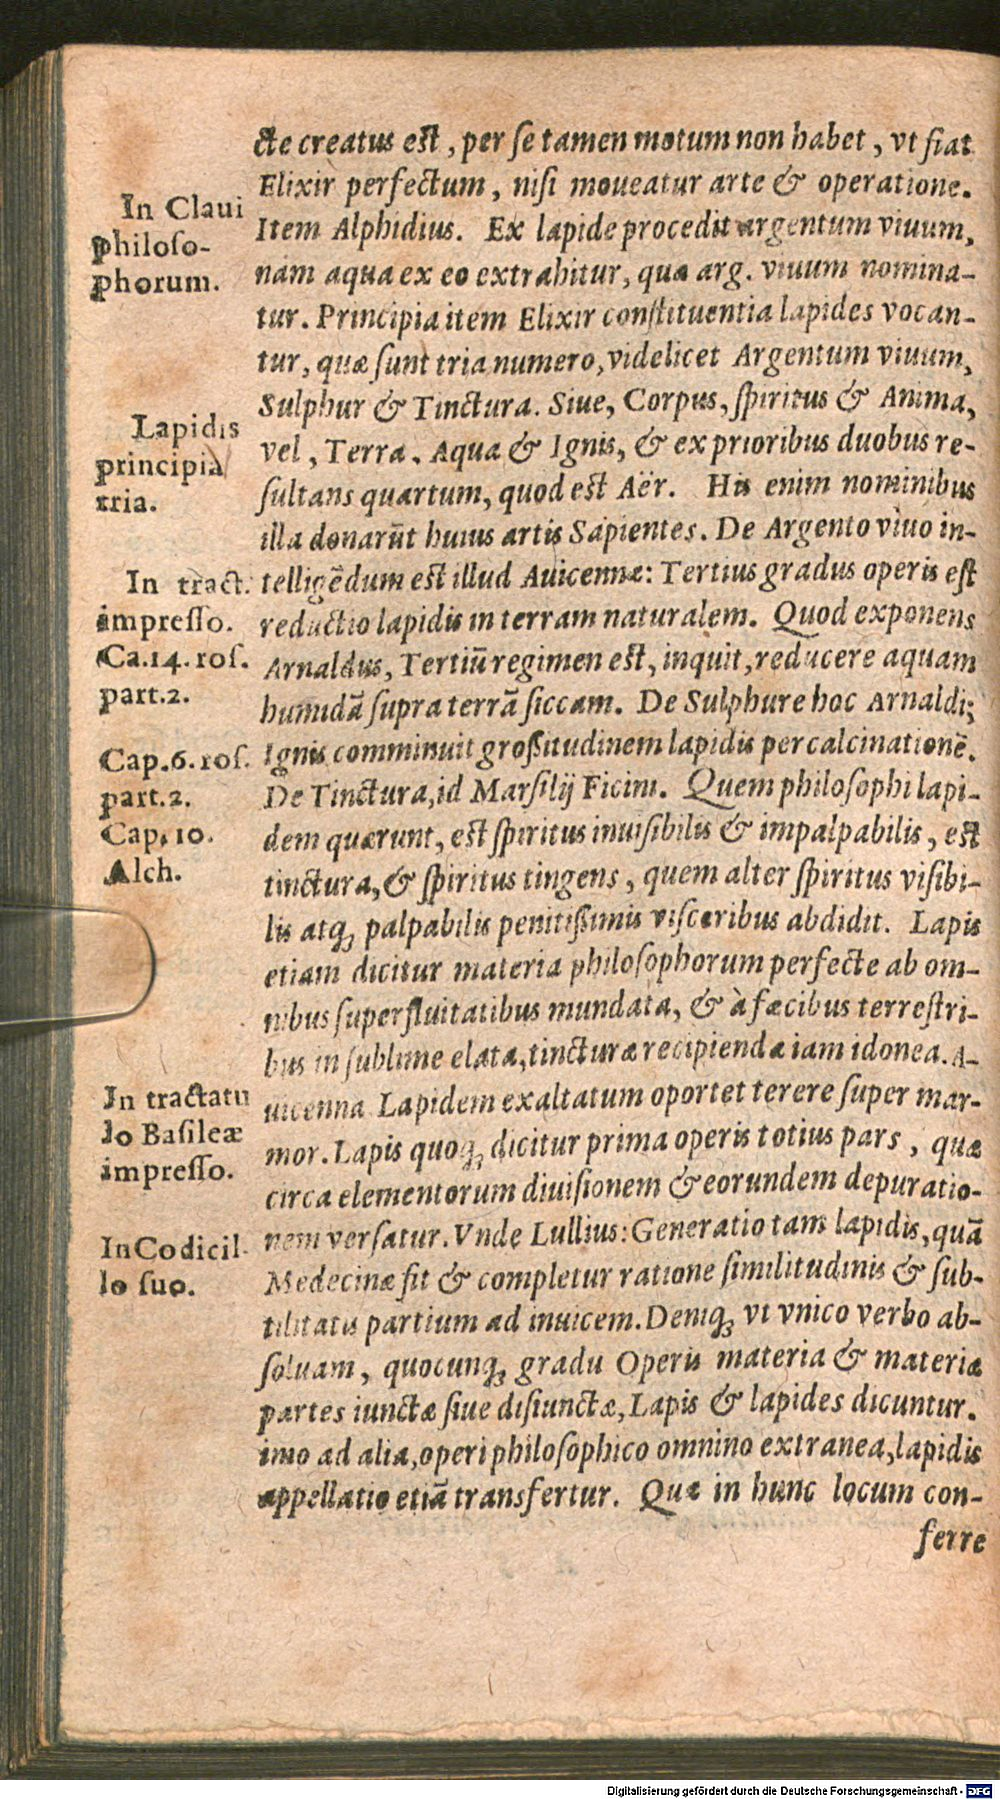 cte creatus est, per se tamen motum non habet, vt fiat
Elixir perfectum, nisi moueatur arte & operatione.
In Claui
philoso-
phorum.
Item Alphidius. Ex lapide procedit argentum viuum,
nam aqua ex eo extrahitur, qua arg. viuum nomina-
tur. Principia item Elixir constituentia lapides vocan-
tur, quæ sunt tria numero, videlicet Argentum viuum,
Sulphur & Tinctura. Siue, Corpus, spiritus & Anima,
Lapidis
principia
tria.
vel, Terra, Aqua & Ignis, & ex prioribus duobus re-
sultans quartum, quod est Aër. His enim nominibus
illa donarūt huius artis Sapientes. De Argento viuo in-
In tract.
impresso.
telligēdum est illud Auicennæ: Tertius gradus operis est
reductio lapidis in terram naturalem. Quod exponens
Ca.14. ros.
part.2.
Arnaldus, Tertiū regimen est, inquit, reducere aquam
humidā supra terrā siccam. De Sulphure hoc Arnaldi;
Cap.6. ros.
part.2.
Ignis comminuit grossitudinem lapidis per calcinationē.
De Tinctura, id Marsilij Ficini. Quem philosophi lapi-
Cap. 10.
Alch.
dem quærunt, est spiritus inuisibilis & impalpabilis, est
tinctura, & spiritus tingens, quem alter spiritus visibi-
lis atq; palpabilis penitissimis visceribus abdidit. Lapis
etiam dicitur materia philosophorum perfecte ab om-
nibus superfluitatibus mundata, & à fæcibus terrestri-
bus in sublime elata, tincturæ recipiendæ iam idonea. A-
In tractatu
lo Basileæ
impresso.
uicenna Lapidem exaltatum oportet terere super mar-
mor. Lapis quoq; dicitur prima operis totius pars, quæ
circa elementorum diuisionem & eorundem depuratio-
In Codicil-
lo suo.
nem versatur. Vnde Lullius: Generatio tam lapidis, quā
Medecinæ fit & completur ratione similitudinis & sub-
tilitatis partium ad inuicem. Deniq; vt vnico verbo ab-
soluam, quocunq; gradu Operis materia & materiæ
partes iunctæ siue disiunctæ, Lapis & lapides dicuntur.
imo ad alia, operi philosophico omnino extranea, lapidis
appellatio etiā transfertur. Quæ in hunc locum con-
ferre
Digitalisierung gefördert durch die Deutsche Forschungsgemeinschaft - DFG